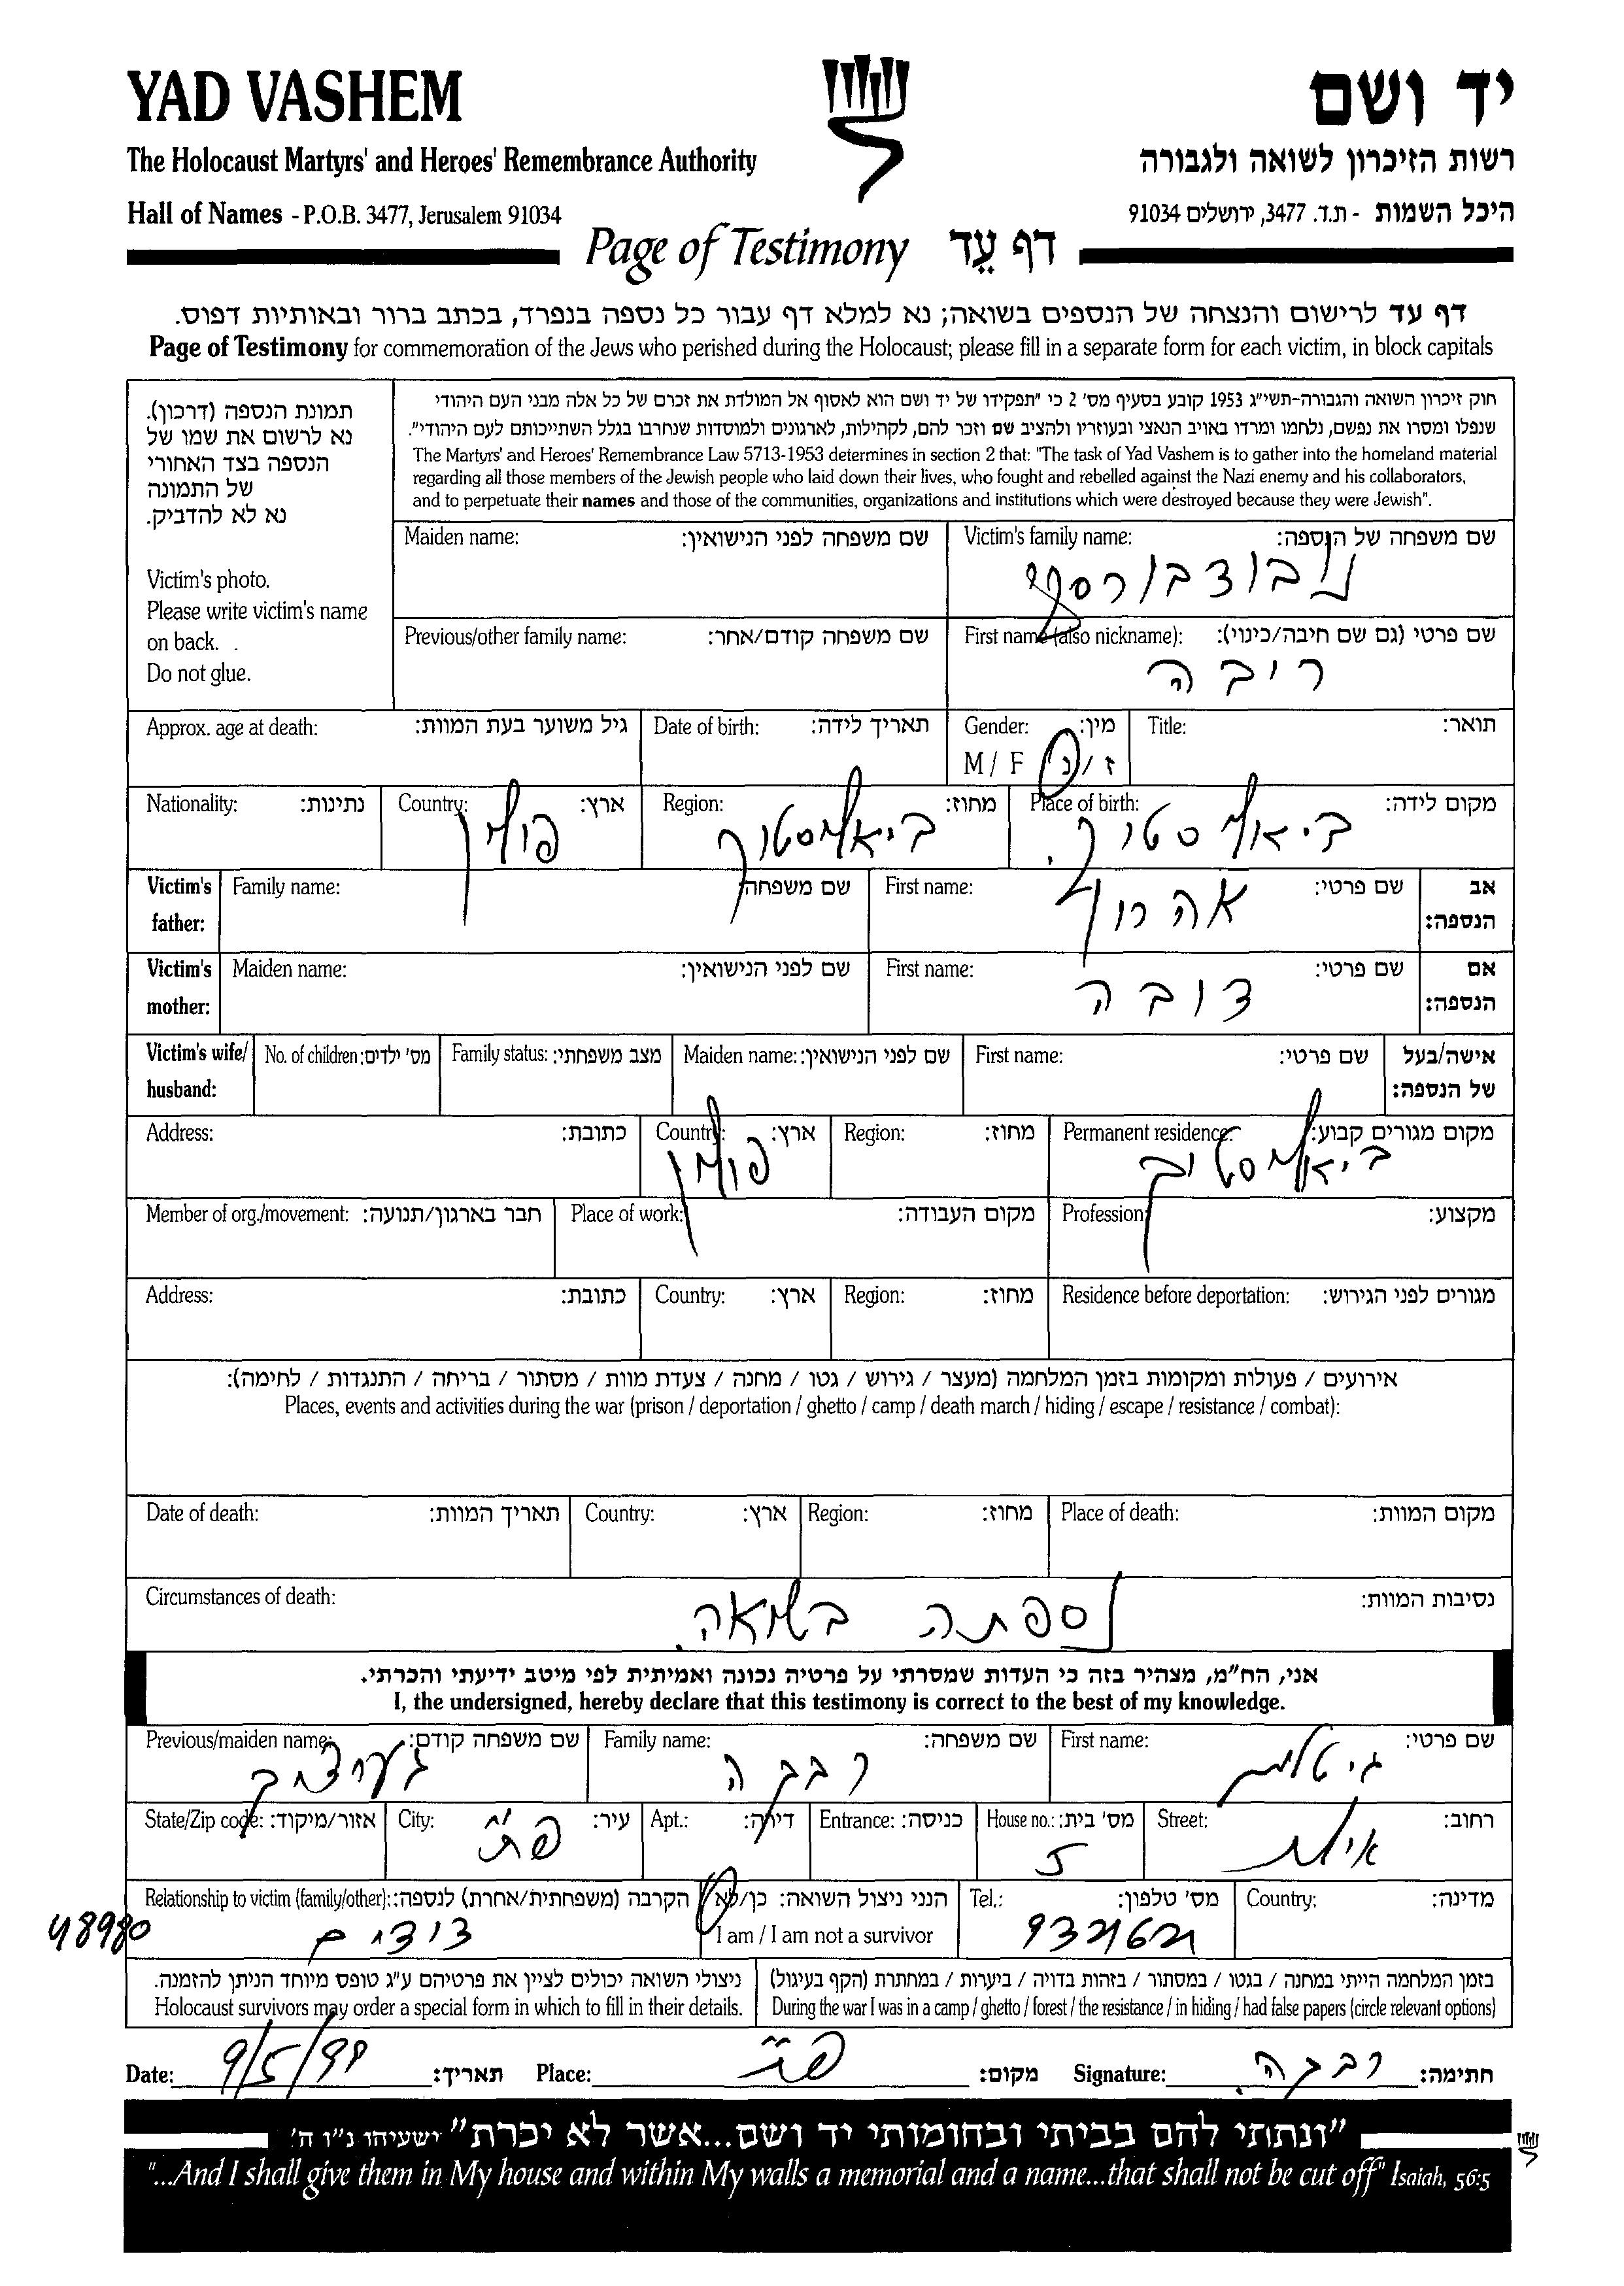 YAD VASHEM
יד ושם
The Holocaust Martyrs' and Heroes' Remembrance Authority
רשות הזיכרון לשואה ולגבורה
Hall of Names - P.O.B. 3477, Jerusalem 91034
היכל השמות - ת.ד. 3477, ירושלים 91034
Page of Testimony דף עֵד
דף עד לרישום והנצחה של הנספים בשואה; נא למלא דף עבור כל נספה בנפרד, בכתב ברור ובאותיות דפוס.
Page of Testimony for commemoration of the Jews who perished during the Holocaust; please fill in a separate form for each victim, in block capitals
תמונת הנספה (דרכון).
נא לרשום את שמו של
הנספה בצד האחורי
של התמונה
נא לא להדביק.
Victim's photo.
Please write victim's name
on back.
Do not glue.
חוק זיכרון השואה והגבורה-תשי"ג 1953 קובע בסעיף מס' 2 כי "תפקידו של יד ושם הוא לאסוף אל המולדת את זכרם של כל אלה מבני העם היהודי
שנפלו ומסרו את נפשם, נלחמו ומרדו באויב הנאצי ובעוזריו ולהציב שם וזכר להם, לקהילות, לארגונים ולמוסדות שנחרבו בגלל השתייכותם לעם היהודי".
The Martyrs' and Heroes' Remembrance Law 5713-1953 determines in section 2 that: "The task of Yad Vashem is to gather into the homeland material
regarding all those members of the Jewish people who laid down their lives, who fought and rebelled against the Nazi enemy and his collaborators,
and to perpetuate their names and those of the communities, organizations and institutions which were destroyed because they were Jewish".
שם משפחה של הנספה: Victim's family name:
שם משפחה לפני הנישואין: Maiden name:
שם פרטי (גם שם חיבה/כינוי): First name (also nickname):
ריבה
שם משפחה קודם/אחר: Previous/other family name:
תואר: Title:
מין: Gender:
ז/נ M / F
תאריך לידה: Date of birth:
גיל משוער בעת המוות: Approx. age at death:
מקום לידה: Place of birth:
ביאליסטוק
מחוז: Region:
ביאליסטוק
ארץ: Country:
פולין
נתינות: Nationality:
אב הנספה: Victim's father:
שם פרטי: First name:
אהרון
שם משפחה: Family name:
אם הנספה: Victim's mother:
שם פרטי: First name:
דובה
שם לפני הנישואין: Maiden name:
אישה/בעל של הנספה: Victim's wife/husband:
שם פרטי: First name:
שם לפני הנישואין: Maiden name:
מצב משפחתי: Family status:
מס' ילדים: No. of children:
מקום מגורים קבוע: Permanent residence:
ביאליסטוק
מחוז: Region:
ארץ: Country:
פולין
כתובת: Address:
מקצוע: Profession:
מקום העבודה: Place of work:
חבר בארגון/תנועה: Member of org./movement:
מגורים לפני הגירוש: Residence before deportation:
מחוז: Region:
ארץ: Country:
כתובת: Address:
אירועים / פעולות ומקומות בזמן המלחמה (מעצר / גירוש / גטו / מחנה / צעדת מוות / מסתור / בריחה / התנגדות / לחימה):
Places, events and activities during the war (prison / deportation / ghetto / camp / death march / hiding / escape / resistance / combat):
מקום המוות: Place of death:
מחוז: Region:
ארץ: Country:
תאריך המוות: Date of death:
נסיבות המוות: Circumstances of death:
נספתה בשואה.
אני, הח"מ, מצהיר בזה כי העדות שמסרתי על פרטיה נכונה ואמיתית לפי מיטב ידיעתי והכרתי.
I, the undersigned, hereby declare that this testimony is correct to the best of my knowledge.
שם פרטי: First name:
גיטלית
שם משפחה: Family name:
רבקה
שם משפחה קודם: Previous/maiden name:
רחוב: Street:
אילת
מס' בית: House no.:
5
כניסה: Entrance:
דירה: Apt.:
עיר: City:
פ"ת
אזור/מיקוד: State/Zip code:
מדינה: Country:
מס' טלפון: Tel.:
9321621
הנני ניצול השואה: כן/לא
I am / I am not a survivor
הקרבה (משפחתית/אחרת) לנספה: Relationship to victim (family/other):
דודים
48980
בזמן המלחמה הייתי במחנה / בגטו / במסתור / בזהות בדויה / ביערות / במחתרת (הקף בעיגול)
During the war I was in a camp / ghetto / forest / the resistance / in hiding / had false papers (circle relevant options)
ניצולי השואה יכולים לציין את פרטיהם ע"ג טופס מיוחד הניתן להזמנה.
Holocaust survivors may order a special form in which to fill in their details.
חתימה: רבקה Signature:
מקום: פ"ת Place:
תאריך: 9/5/99 Date:
"ונתתי להם בביתי ובחומותי יד ושם...אשר לא יכרת" ישעיהו נ"ו ה'
"...And I shall give them in My house and within My walls a memorial and a name...that shall not be cut off" Isaiah, 56:5